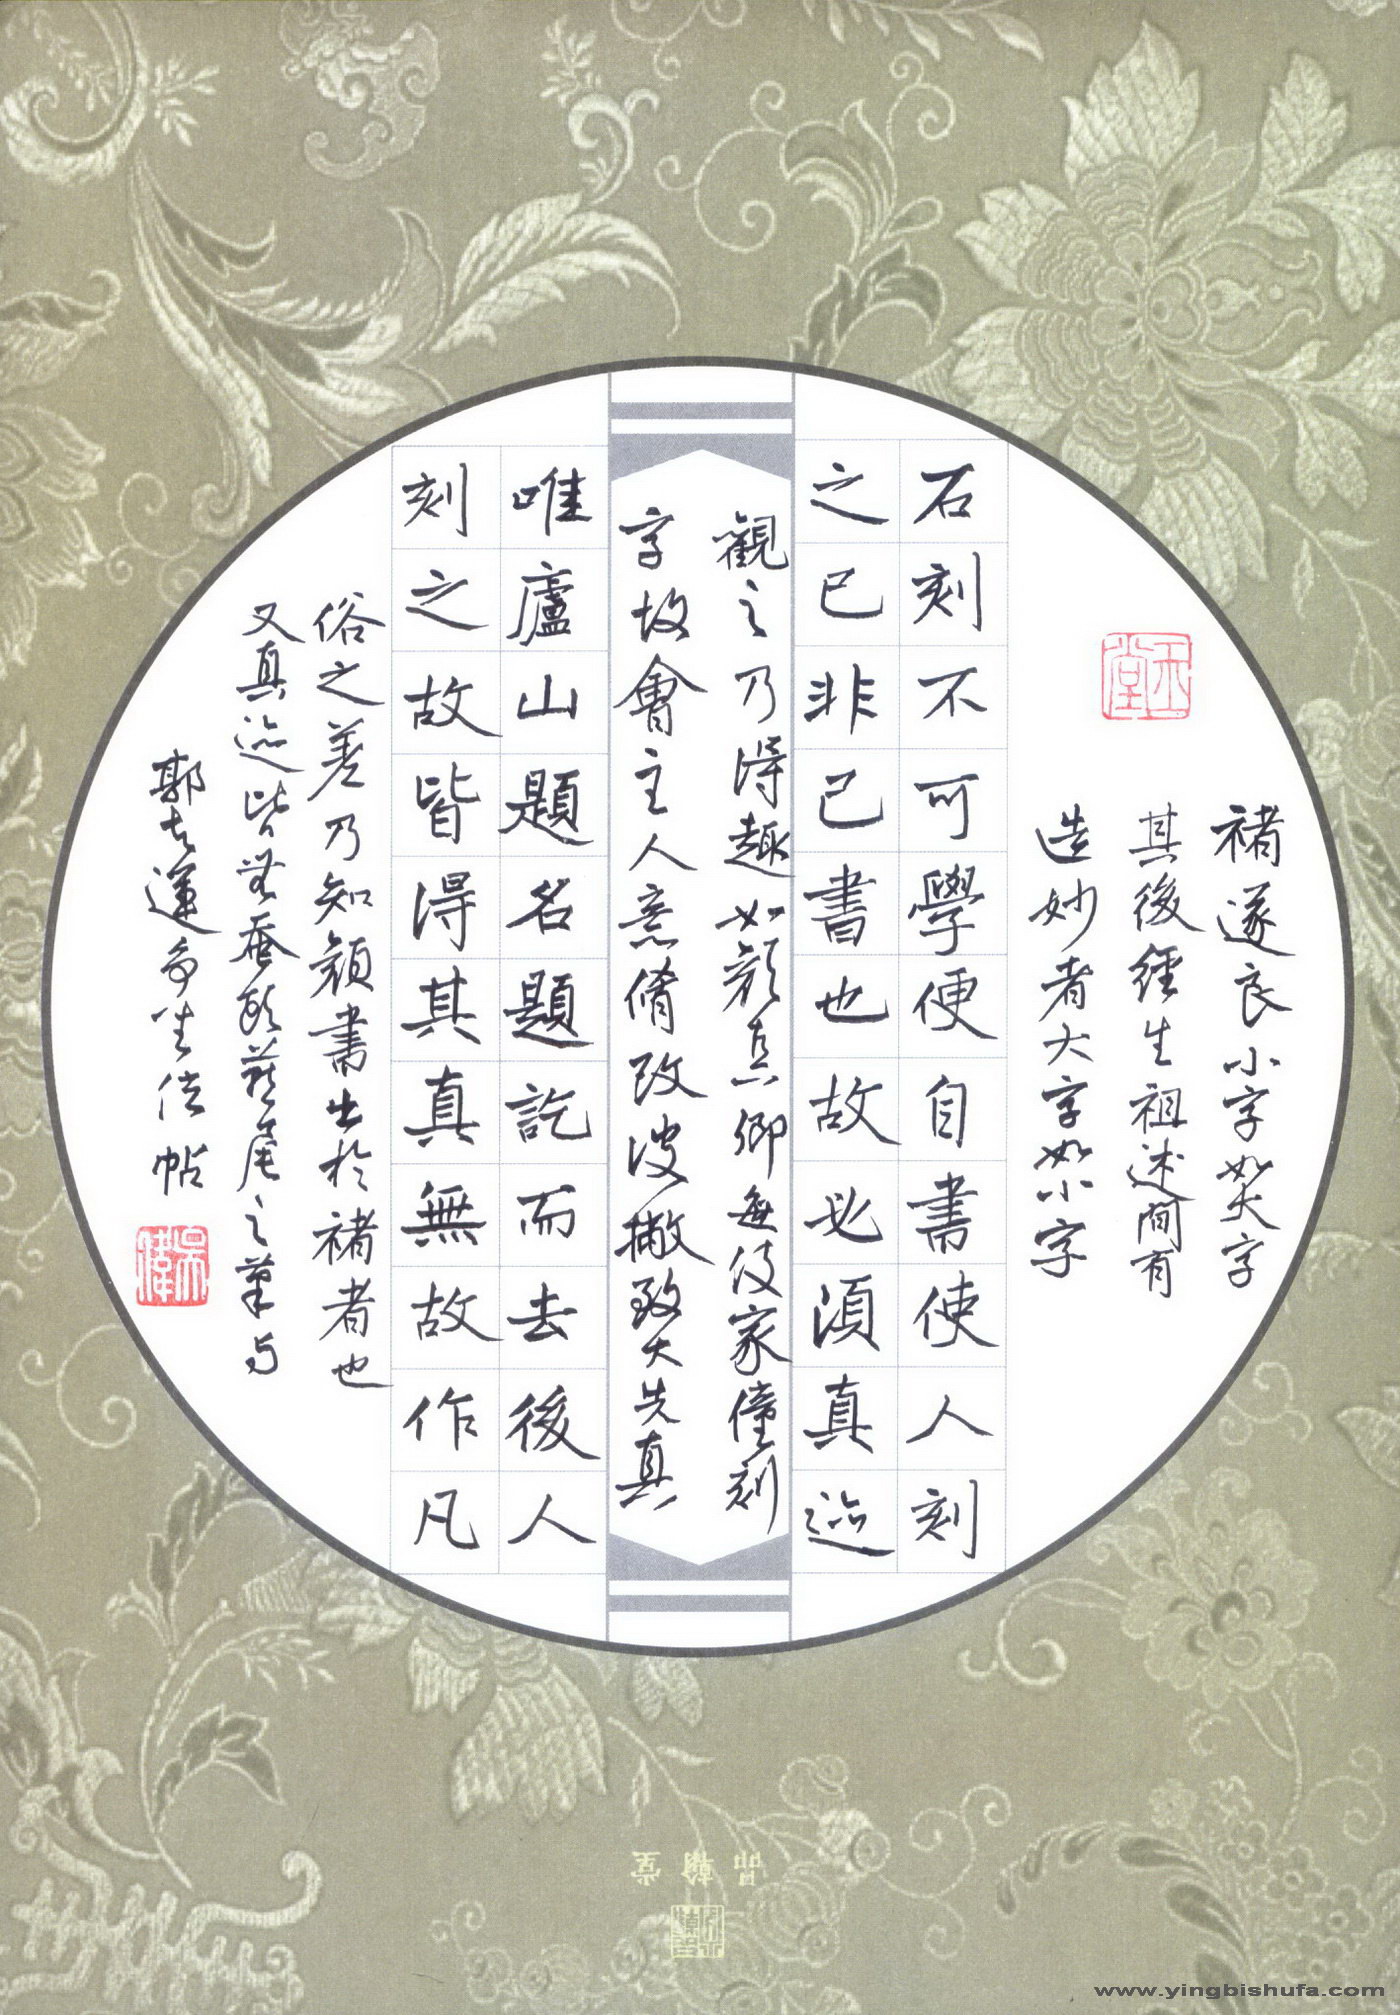 褚遂良小字如大字
其後經生祖述間有
造妙者大字如小字
玉堂
石刻不可學便自書使人刻
之已非己書也故必須真迹
觀之乃得趣如顏真卿每使家僮刻
字故會主人意脩改波撇致大失真
唯廬山題名題訖而去後人
刻之故皆得其真無故作凡
俗之差乃知顏書出於褚者也
又真迹皆無蚕頭燕尾之筆与
郭知運爭坐位帖
吳偉
品翰堂
www.yingbishufa.com